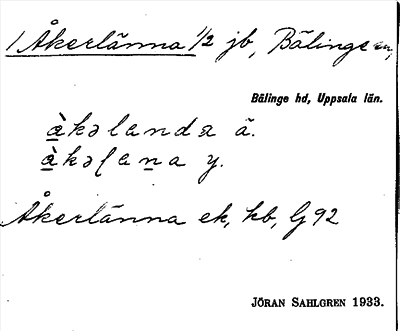 1 Åkerlänna 1/2 jb, Bälinge sn,
Bälinge hd, Uppsala län.
àkəlanda ä.
àkəɭana y.
Åkerlänna ek, kb, Lj 92
JÖRAN SAHLGREN 1933.